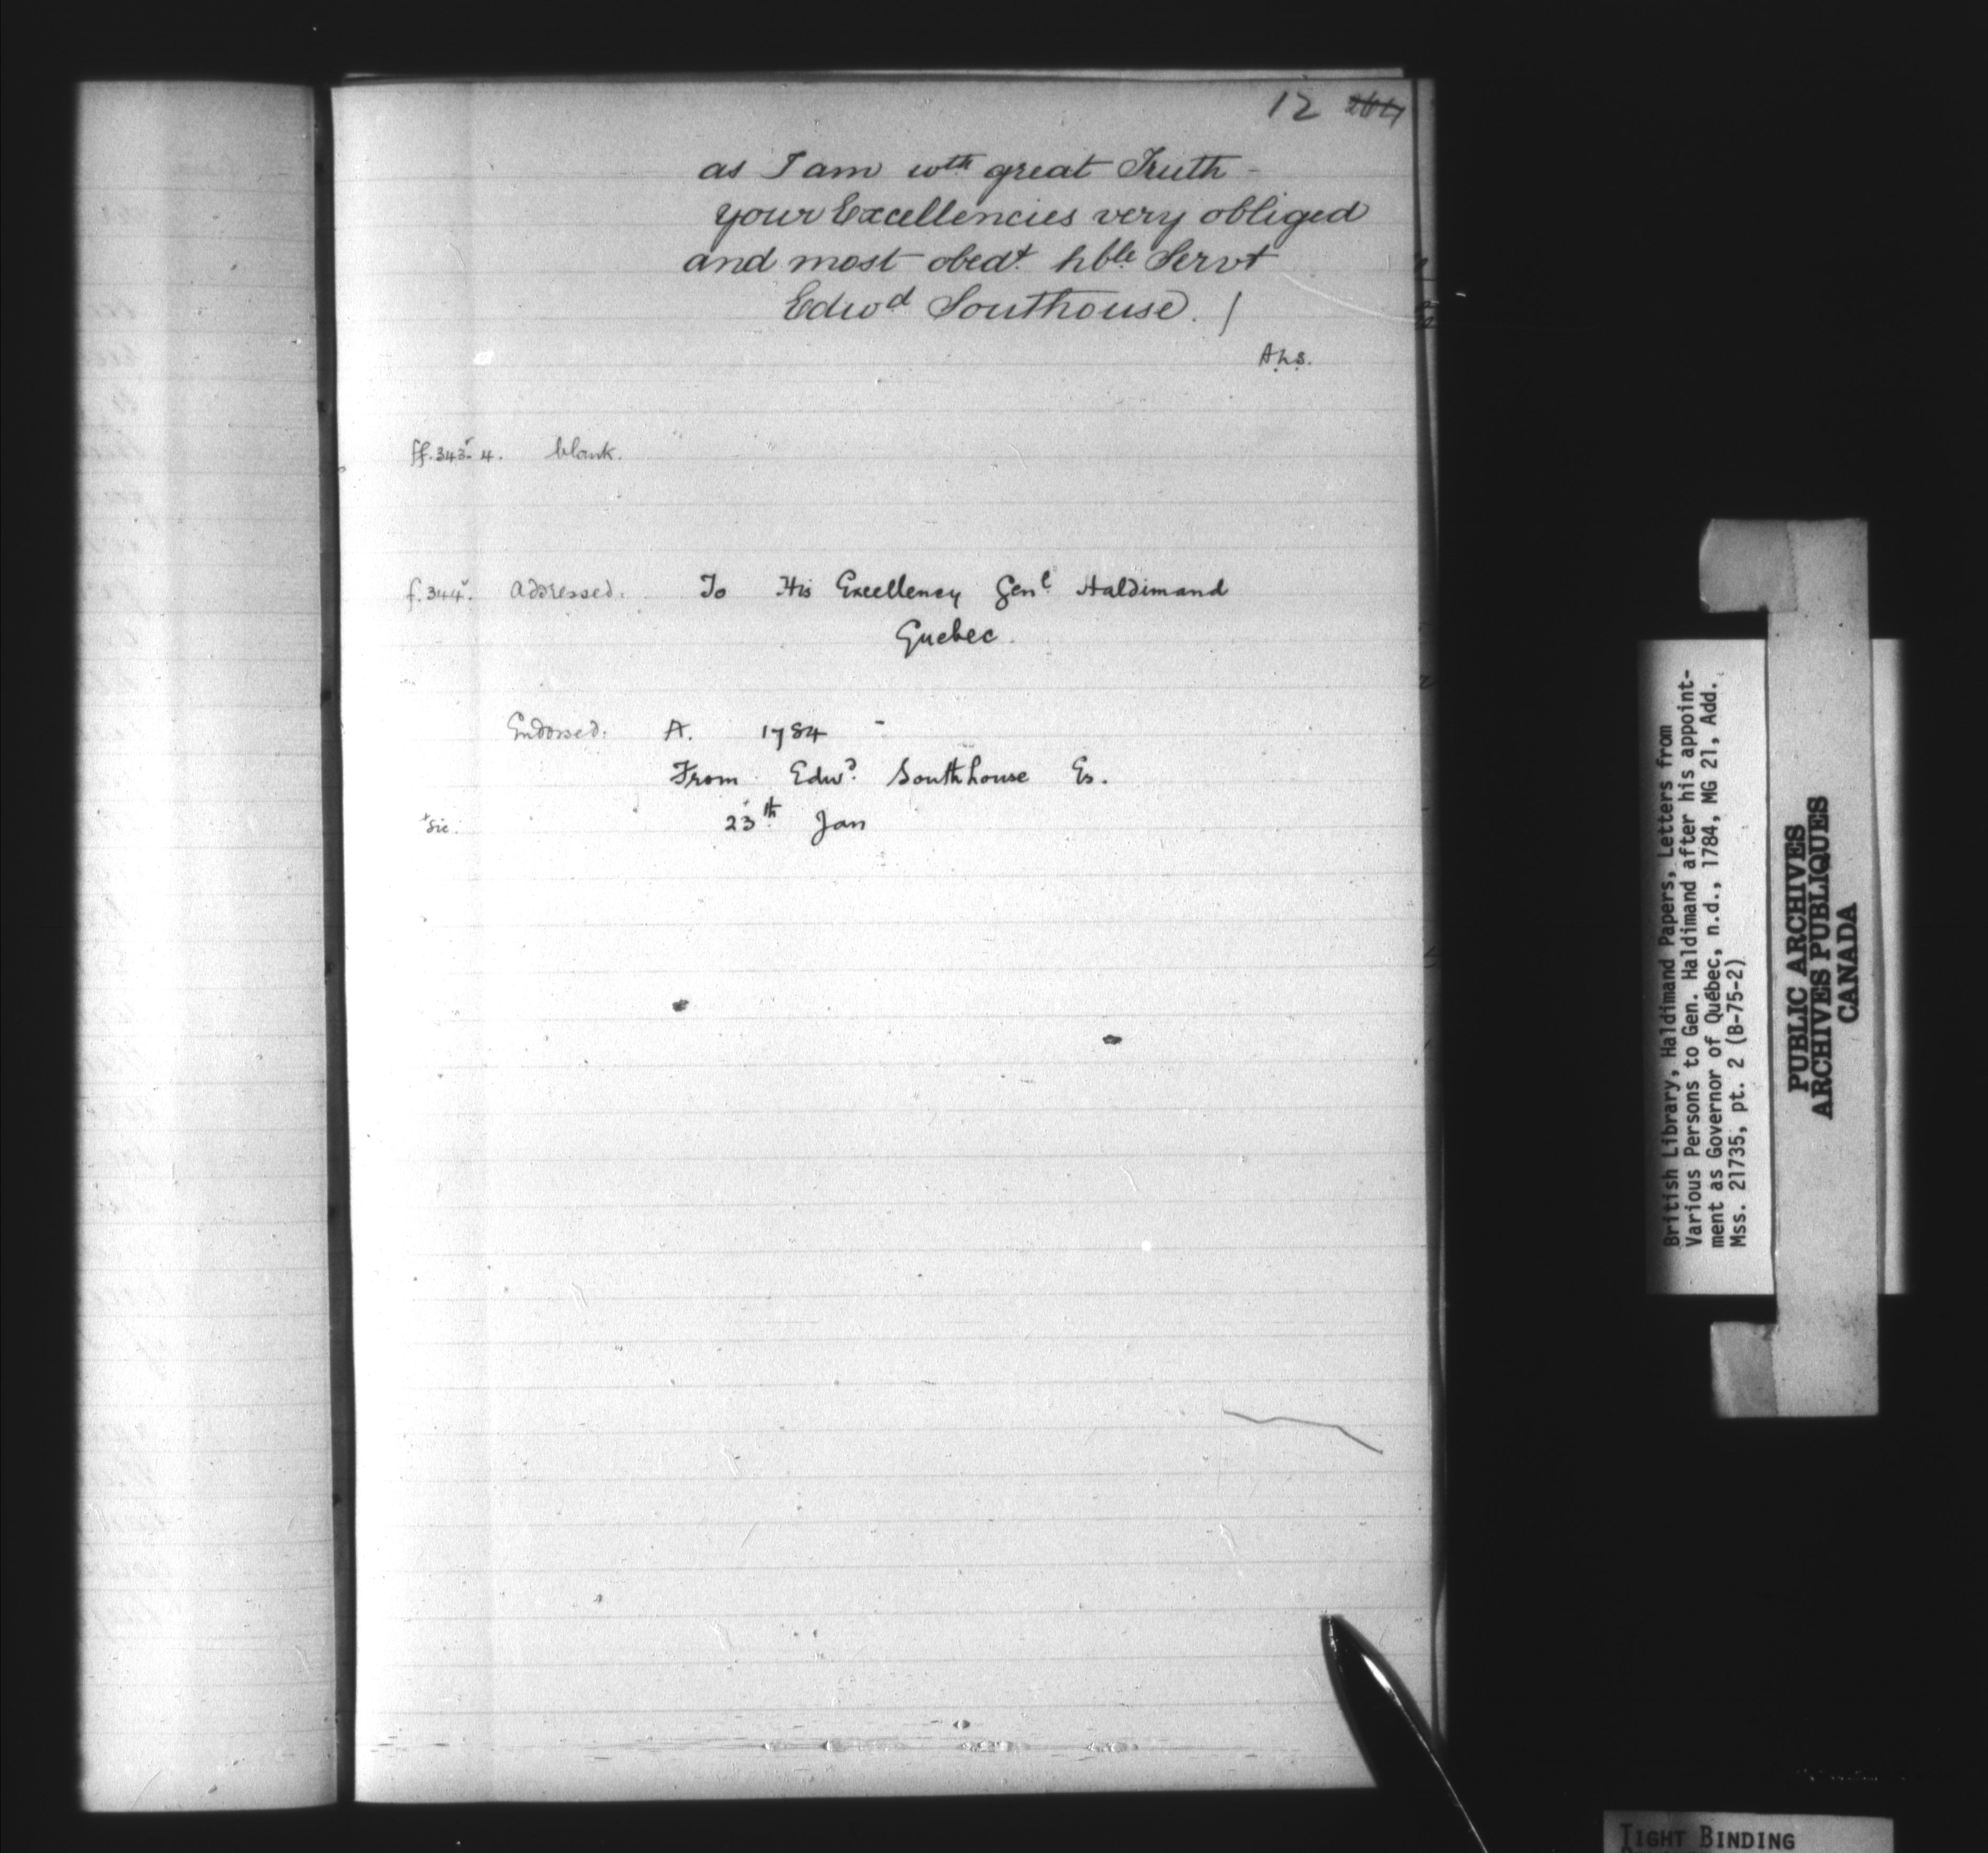 12
as I am wth great Truth -
your Excellencies very obliged
and most obedt. hble Servt
Edwd Southouse. /
A.L.S.
ff. 343v-4. blank.
f. 344v. Addressed: To His Excellency Genl. Haldimand
Quebec.
Endorsed: A. 1784 -
From Edwd. Southhouse Es.
+sic. 23th Jan
British Library, Haldimand Papers, Letters from
Various Persons to Gen. Haldimand after his appoint-
ment as Governor of Québec, n.d., 1784, MG 21, Add.
Mss. 21735, pt. 2 (B-75-2)
PUBLIC ARCHIVES
ARCHIVES PUBLIQUES
CANADA
TIGHT BINDING